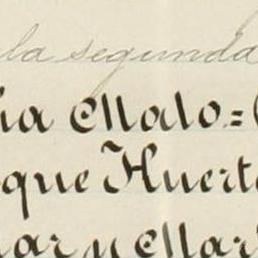 la segunda
ia Malo.=
que Huert
ar y Mar